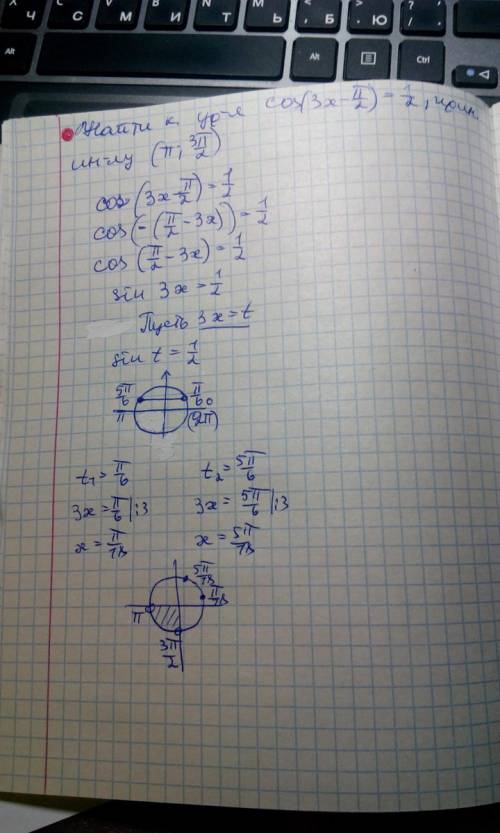 Ч С М И Т Ь Б Ю
Alt Alt Ctrl
Найти к. ур-я cos(3x-π/2)=1/2,
ин-лу (π; 3π/2)
cos(3x-π/2)=1/2
cos(-(π/2-3x))=1/2
cos(π/2-3x)=1/2
sin 3x=1/2
Пусть 3x=t
sin t=1/2
5π/6 π/6
π 0
(2π)
t₁=π/6 t₂=5π/6
3x=π/6 |:3 3x=5π/6 |:3
x=π/18 x=5π/18
5π/18
π/18
π
3π/2